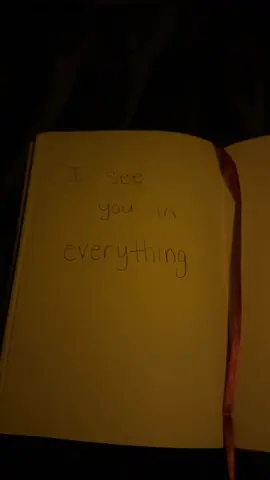 I see
you in
everything